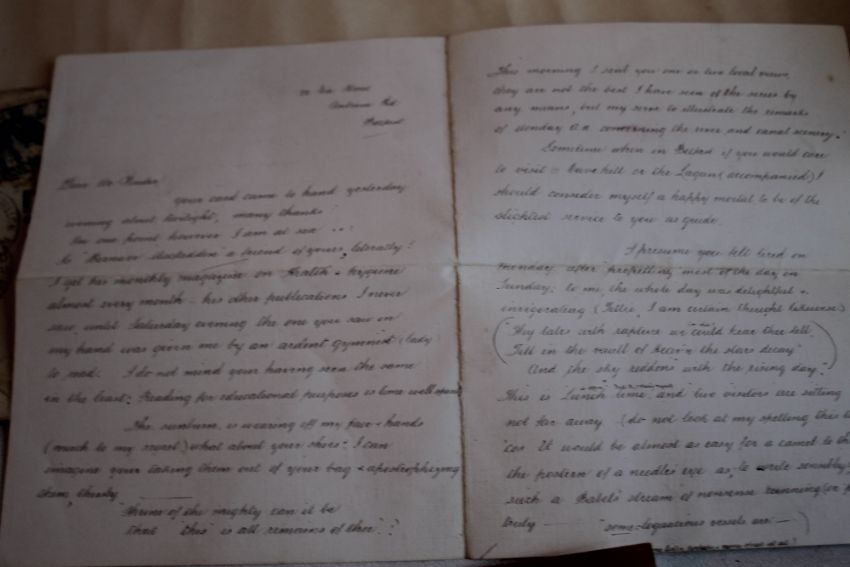 Antrim Rd
Belfast
Dear Mr
your card came to hand yesterday
evening about twilight, many thanks
On one point however I am at sea ..?
Is "Bernarr Macfadden" a friend of yours, literally?
I get his monthly magazine on Health + hygiene
almost every month - his other publications I never
saw until Saturday evening the one you saw in
my hand was given me by an ardent gymnist (lady
to read. I do not mind your having seen the same
in the least: Reading for educational purposes is time well spent
The sunburn is wearing off my face + hands
(much to my regret) what about your shoes? I can
imagine your taking them out of your bag + apostrophizing
them, thusly
"Shrine of the mighty can it be
That "this" is all remains of thee"?
This morning I sent you one or two local views,
they are not the best I have seen of the series by
any means, but my serve to illustrate the remarks
of Sunday concerning the river and canal scenery.
Sometime when in Belfast if you would care
to visit Cave hill or the Lagan (accompanied) I
should consider myself a happy mortal to be of the
slightest service to you as guide.
I presume you felt tired on
Monday after propelling most of the day on
Sunday; to me the whole day was delightful +
invigorating (Tillie, I am certain thought likewise)
Thy tales with rapture we could hear thee tell
Till in the vault of heav'n the stars decay
And the sky reddens with the rising day".
This is Lunch time, and two visitors are sitting
not far away. (do not look at my spelling this
'cos It would be almost as easy for a camel to
the postern of a needle's eye as, to write sensibly
such a Babel's stream of nonsense running (or
truly some loquacious vessels are )